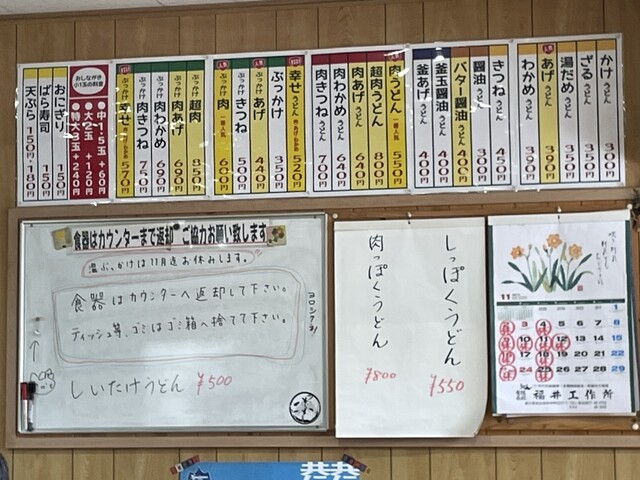 かけ うどん 300円
ざる うどん 350円
湯だめ うどん 350円
あげ うどん 390円
わかめ うどん 390円
きつね うどん 450円
醤油 うどん 300円
バター醤油 うどん 400円
釜玉醤油 うどん 400円
釜あげ うどん 400円
人気 肉うどん 一番人気 550円
超肉うどん 800円
肉あげ うどん 640円
肉わかめ うどん 640円
肉きつね うどん 700円
幸せ うどん 肉・あげ・わかめ 520円
ぶっかけ 350円
ぶっかけ あげ 440円
ぶっかけ きつね 500円
ぶっかけ 肉 一番人気 600円
ぶっかけ 超肉 850円
ぶっかけ 肉あげ 690円
ぶっかけ 肉わかめ 690円
ぶっかけ 肉きつね 750円
ぶっかけ 幸せ 570円
おしながき
小1玉の料金
●中1.5玉+60円
●大2玉+120円
●特大3玉+240円
おにぎり 150円
ばら寿司 150円
天ぷら 150円~100円
食器はカウンターまで返却 ご協力お願い致します
温ぶっかけは11月迄お休みします。
食器はカウンターへ返却して下さい。
ティッシュ等、ゴミはゴミ箱へ捨てて下さい。
ヨロシクネ!
しいたけうどん ¥500
しっぽくうどん ¥550
肉っぽくうどん ¥800
11
1
3 4 5 6 7 8
10 11 12 13 14 15
17 18 19 20 21 22
24 25 26 27 28 29
福井工作所